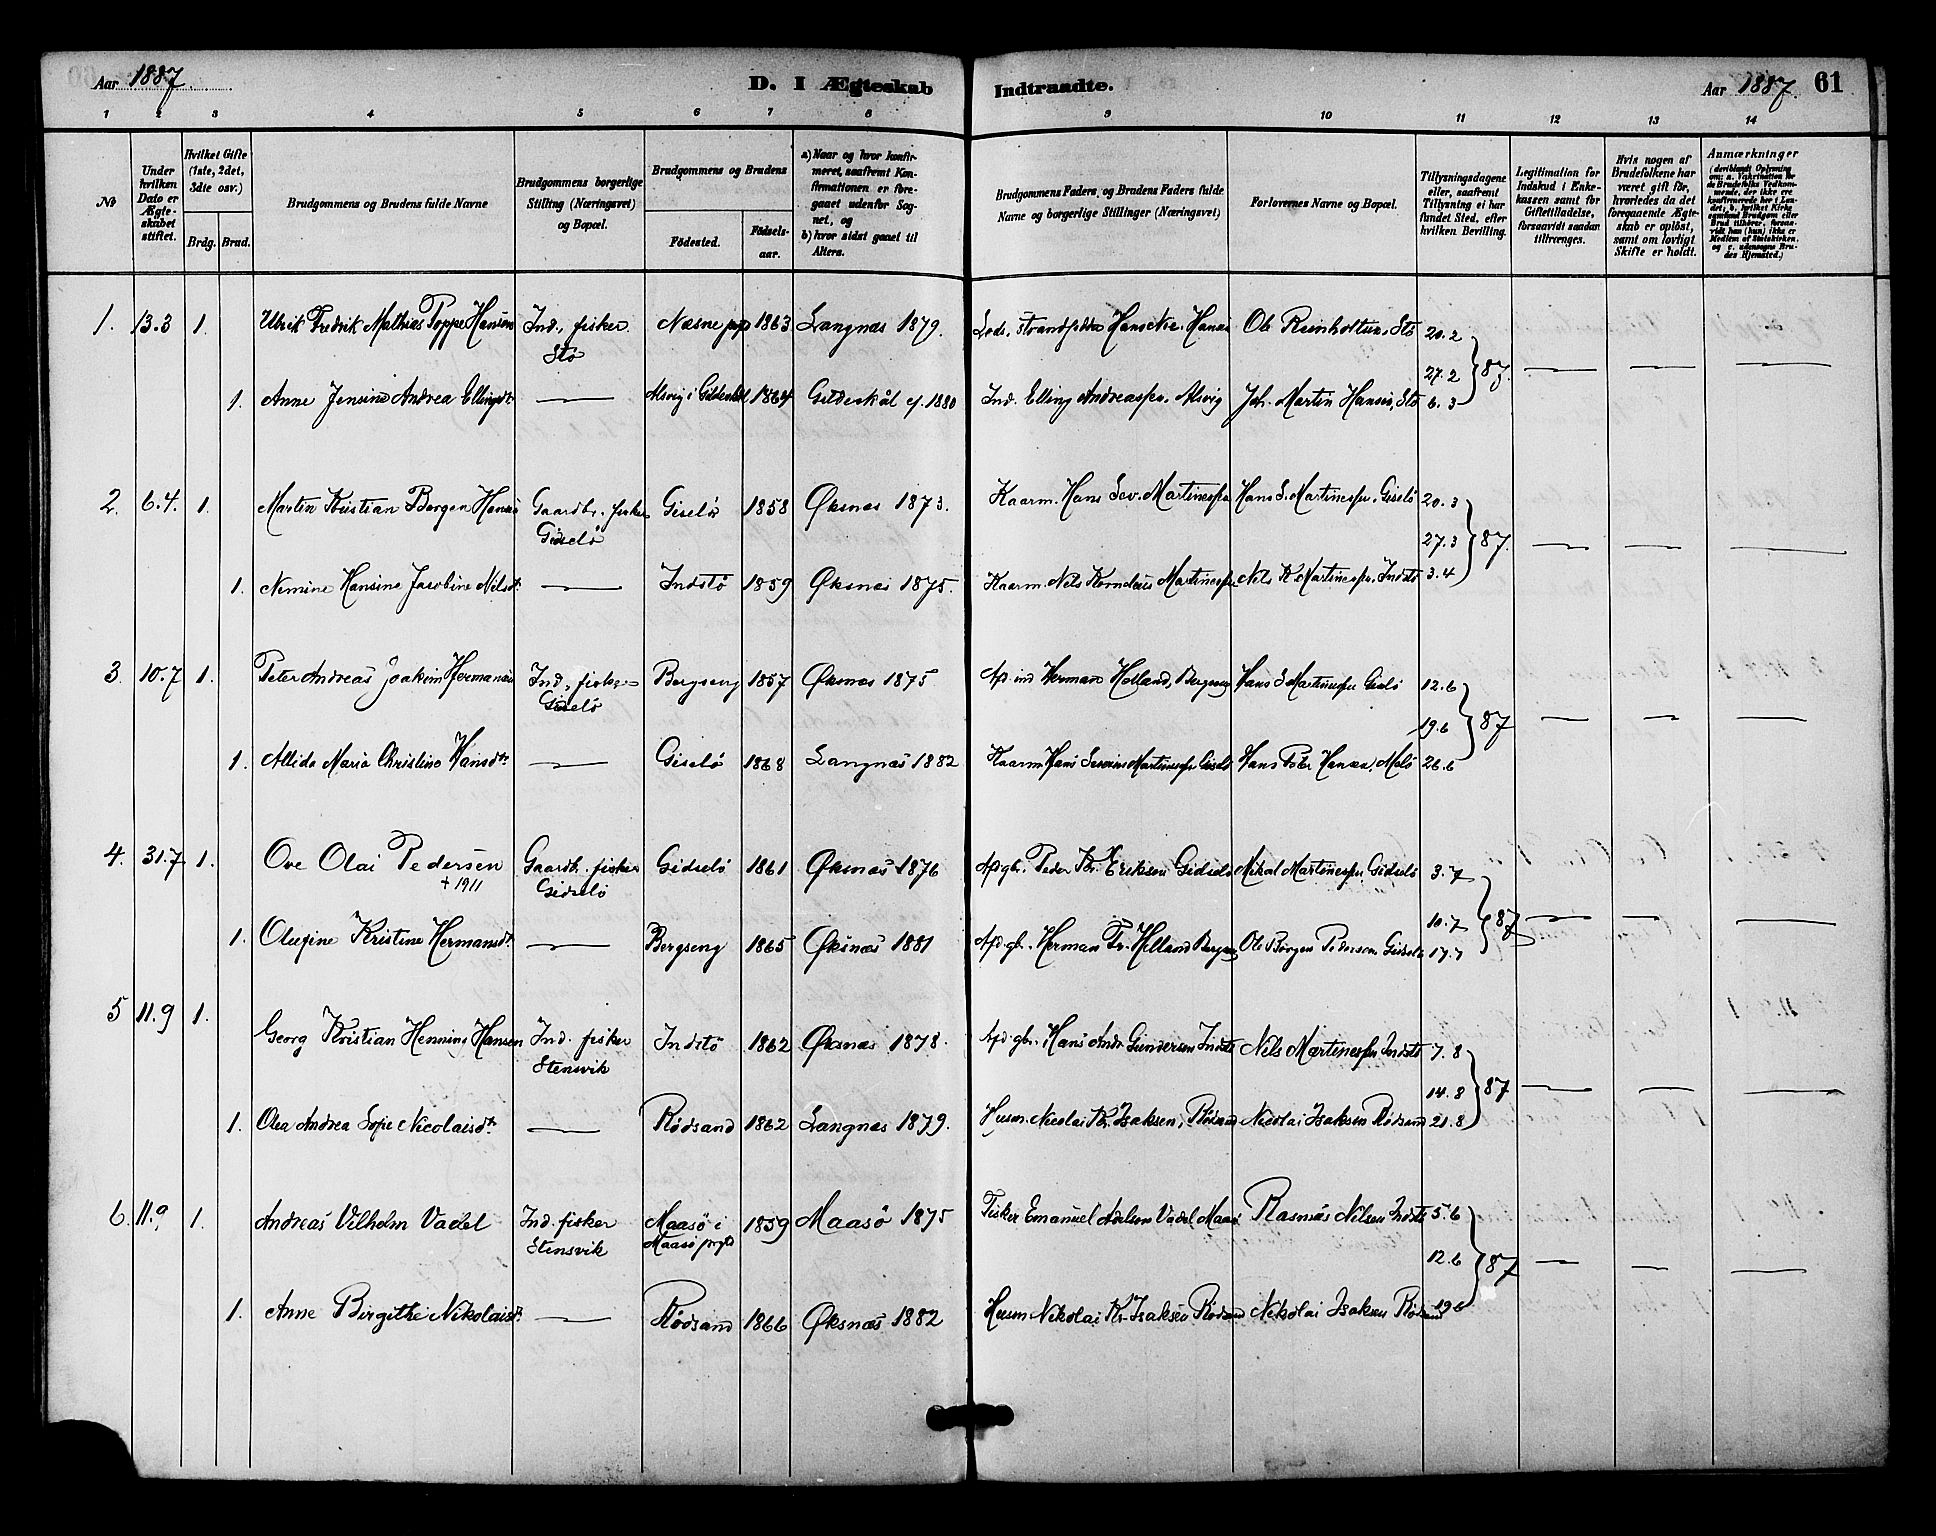 Aar 1887. D. I Ægteskab Indtraadte. Aar 1887. 61
1 2 3 4 5 6 7 8 9 10 11 12 13 14
№
Under hvilken Dato er Ægteskabet stiftet.
Hvilket Gifte (1ste, 2det, 3die osv.)
Brdg. Brud.
Brudgommens og Brudens fulde Navne
Brudgommens borgerlige Stilling (Næringsvei) og Bopæl.
Brudgommens og Brudens
Fødested. Fødsels-aar.
a) Naar og hvor konfirmeret, saafremt Konfirmationen er foregaaet udenfor Sognet, og
b) hvor sidst gaaet til Alters.
Brudgommens Faders, og Brudens Faders fulde Navne og borgerlige Stillinger (Næringsvei)
Forlovernes Navne og Bopæl.
Tillysningsdagene eller, saafremt Tillysning ei har fundet Sted, efter hvilken Bevilling.
Legitimation for Indskud i Enkekassen samt for Giftetilladelse, forsaavidt saadan tiltrænges.
Hvis nogen af Brudefolkene har været gift før, hvorledes da det foregaaende Ægteskab er opløst, samt om lovligt Skifte er holdt.
Anmærkninger
1. 13.3 1. Ulrik Fredrik Mathias Poppe Hansen Ind., fisker. Stø Næsne pgj 1863 Langnæs 1879. Ole Reinholtsen, Stø 20.2
27.2 } 87.
1. Anne Jensine Andrea Ellingsdr. Alsvig i Gildeskål 1864 Gildeskål ej. 1880 Ind. Elling Andreassen, Alsvig Joh. Martin Hansen, Stø 6.3
2. 6.4. 1. Martin Kristian Borgen Hansen Gaardbr. fisker Gidselø Giselø 1858 Øksnes 1873. Kaarm. Hans Sev. Martinessen Hans S. Martinessen, Giselø 20.3
27.3 } 87.
1. Nemine Hansine Jacobine Nilsdr. Indstø 1859 Øksnæs 1875. Kaarm. Nels Korneleus Martinessen Nils K. Martinessen, Indstø 3.4
3. 10.7 1. Peter Andreas Joakim Hermansen Ind., fisker Gidselø Bergseng 1857 Øksnes 1875 Herman Holland, Bergseng Hans S Martinessen Giselø 12.6
19.6 } 87
1. Allida Maria Christine Hansdr. Giselø 1868 Langnæs 1882 Kaarm Hans Severin Martinessen Giselø Hans Peter Hansen, Melø 26.6
4. 31.7 1. Ove Olai Pedersen Gaardb. fisker Gidselø Gidselø 1861 Øksnæs 1876 Apdgbr. Peder Kr. Eriksen Gidselø Mikal Martinessen Gidselø 3.7
+ 1911
10.7 } 87
1. Olufine Kristine Hermansdr. Bergseng 1865 Øksnæs 1881 Apdgb. Herman Fr. Holland Bergseng Ole Borgen Pedersen Gidselø 17.7
5 11.9 1. Georg Kristian Henning Hansen Ind. fisker Stensvik Indstø 1862 Øksnæs 1878. Apd gbr. Hans Andr Gundersen Indstø Nils Martinessen Indstø 7.8
14.8 } 87
1. Olea Andrea Sofie Nicolaisdr. Rødsand 1862 Langnæs 1879. Husm. Nicolai Kr. Isaksen, Rødsand Nicolai Isaksen Rødsand 21.8
6. 11.9 1. Andreas Vilhelm Vadel Ind. fisker Stensvik Maasø i Maasø prgld 1859 Maasø 1875 Fisker Emanuel Adelsen Vadel Maasø Rasmus Nilsen Indstø 5.6
12.6 } 87
1. Anne Birgithe Nikolaisdr. Rødsand 1866 Øksnæs 1882 Husm Nikolai Kr. Isaksen Rødsand Nikolai Isaksen Rødsand 19.6